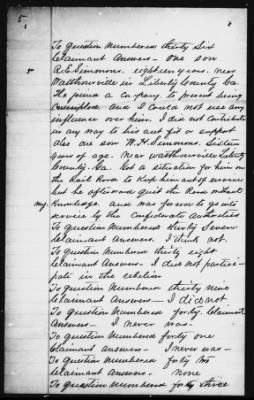 To question numbered thirty six
Claimant Answers - One son
R.E. Simmons. eighteen years. near
Walthourville in Liberty County Ga.
He joined a company to prevent being
conscripted. and I could not use any
influence over him. I did not contribute
in any way to his out fit or support
also one son W.H. Simmons. Sixteen
years of age. Near Walthourville Liberty
County. Ga. Got a situation for him on
the Rail Road to keep him out of service
but he afterward quit the Road without
my knowledge. and was forced to go into
service by the Confederate Authorities
To question numbered thirty seven
Claimant Answers. I think not.
To question numbered thirty eight
Claimant Answers. I did not partici-
pate in the rebellion
To question numbered thirty nine
Claimant Answers - I did not.
To question numbered forty. Claimant
Answers - I never was.
To question numbered forty one
Claimant Answers - I never was -
To question numbered forty two
Claimant Answers. none
To question numbered forty three